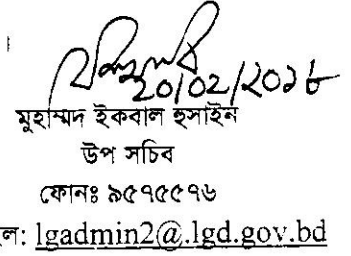 ২০/০২/২০১৮
মুহাম্মদ ইকবাল হুসাইন
উপ সচিব
ফোনঃ ৯৫৭৫৫৭৬
ল: lgadmin2@.lgd.gov.bd